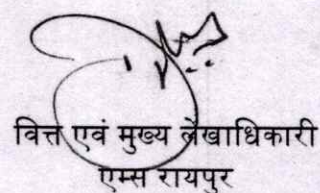 वित्त एवं मुख्य लेखाधिकारी
एम्स रायपुर